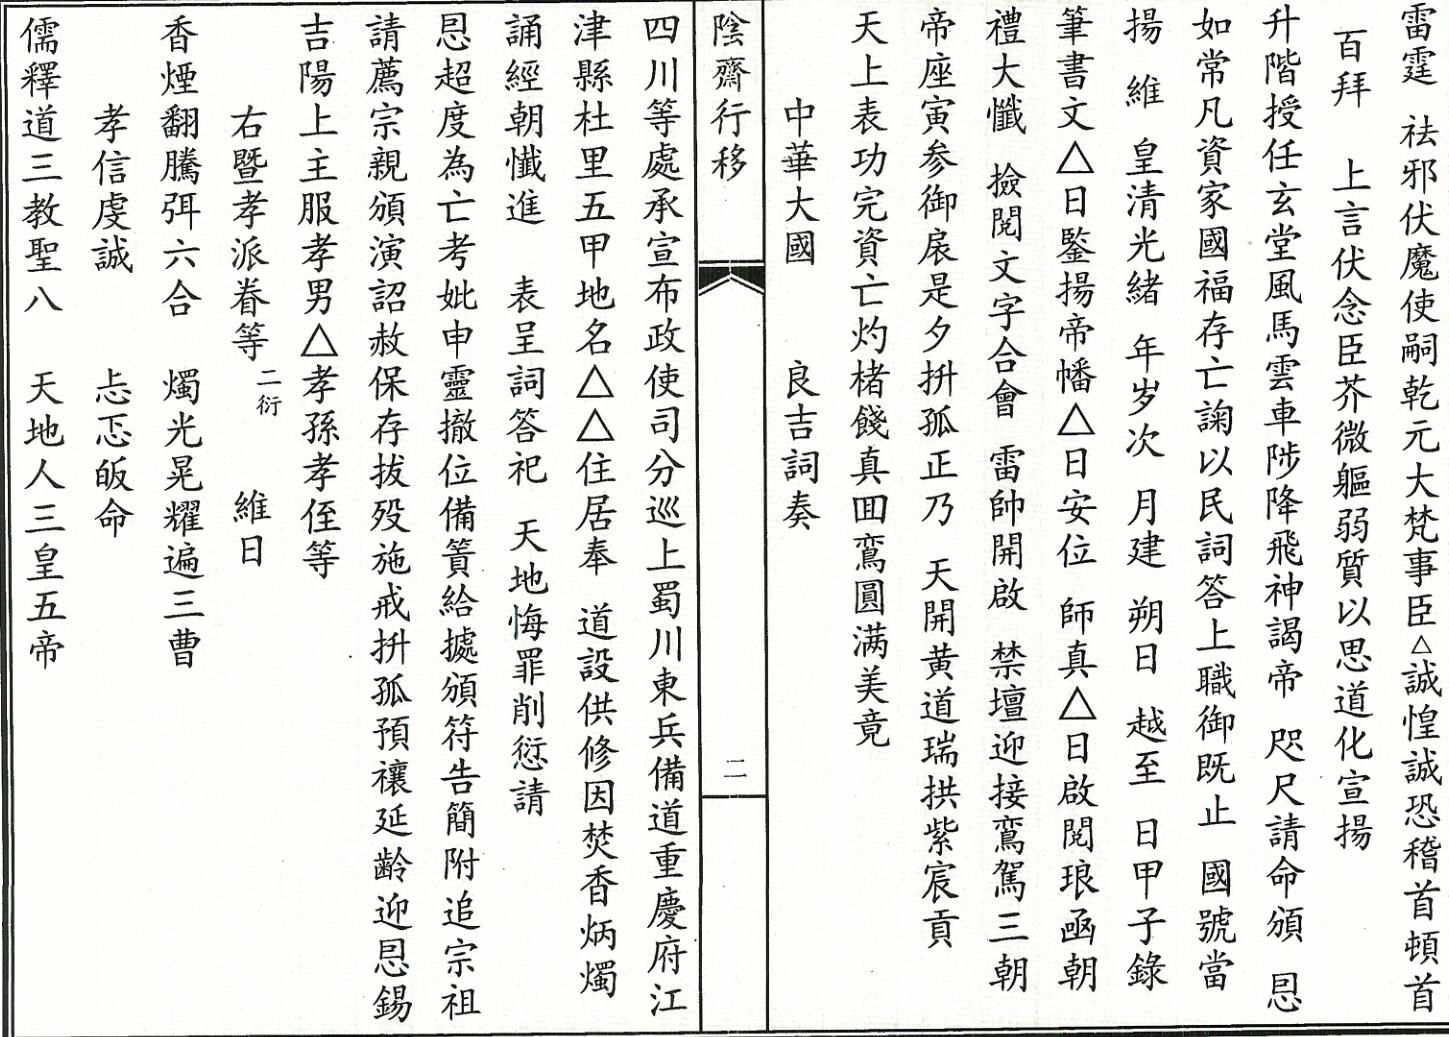 雷霆　祛邪伏魔使嗣乾元大梵事臣△誠惶誠恐稽首頓首
百拜　上言伏念臣芥微軀弱質以思道化宣揚
升階授任玄堂風馬雲車陟降飛神謁帝　咫尺請命頒　恩
如常凡資家國福存亡諭以民詞答上職御既止　國號當
揚　維　皇清光緒　年岁次　月建　朔日　越至　日甲子錄
筆書文△日鑒揚帝幡△日安位　師真△日啟閱琅函朝
禮大懺　撿閱文字合會　雷帥開啟　禁壇迎接鸞駕三朝
帝座寅参御扆是夕拚孤正乃　天開黄道瑞拱紫宸貢
天上表功完資亡灼楮餞真囬鸞圓满美竟
中華大國　良吉詞奏
陰齋行移
二
四川等處承宣布政使司分巡上蜀川東兵備道重慶府江
津縣杜里五甲地名△△住居奉　道設供修因焚香炳燭
誦經朝懺進　表呈詞答祀　天地悔罪削愆請
恩超度為亡考妣申靈撤位備簀給據頒符告簡附追宗祖
請薦宗親頒演詔赦保存拔殁施戒拚孤預禳延齡迎恩錫
吉陽上主服孝男△孝孫孝侄等
右暨孝派眷等二衍　維日
香煙翻騰弭六合　燭光晃耀遍三曹
孝信虔誠　忐忑皈命
儒釋道三教聖八　天地人三皇五帝